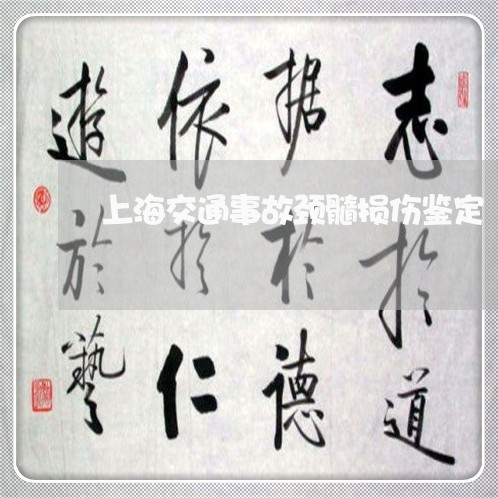 志於道
据於德
依於仁
遊於藝
上海交通事故颈髓损伤鉴定